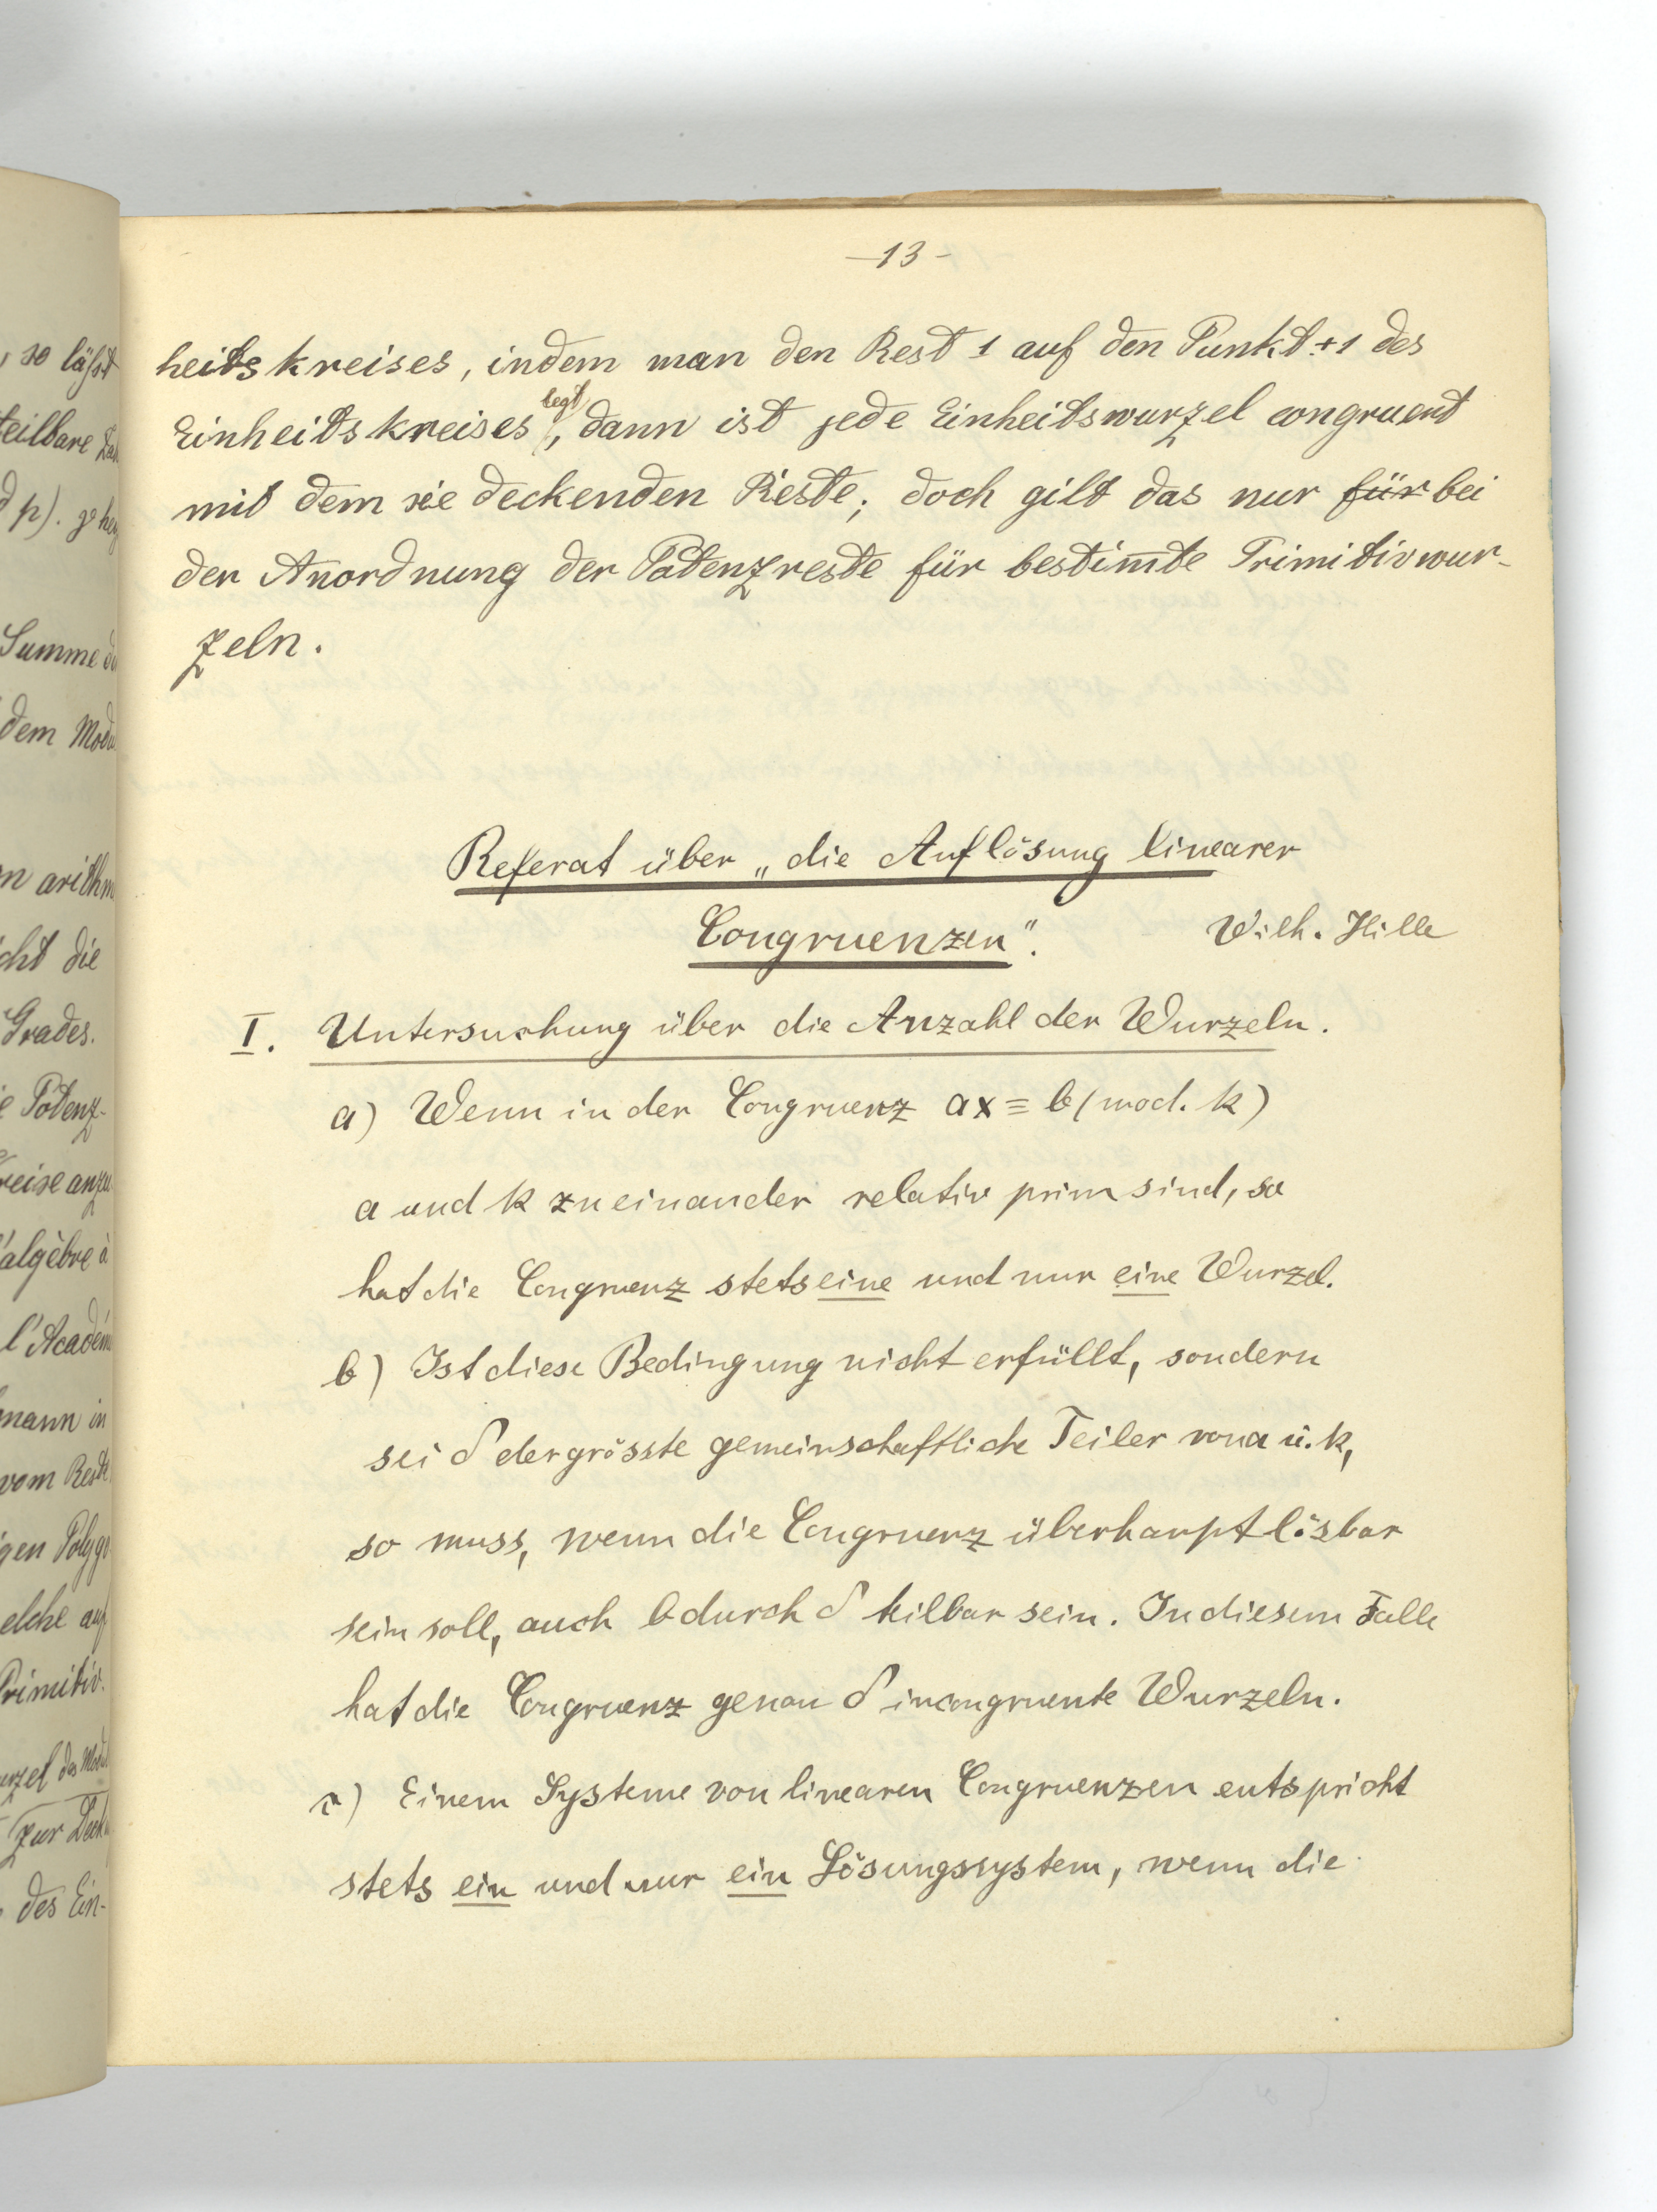 -13-
heitskreises, indem man den Rest 1 auf den Punkt +1 des
Einheitskreises legt, dann ist jede Einheitswurzel congruent
mit dem sie deckenden Reste; doch gilt das nur für bei
der Anordnung der Potenzreste für bestim̅te Primitivwur-
zeln.
Referat über „die Auflösung linearer
Congruenzen".
Wilh. Hille
I. Untersuchung über die Anzahl der Wurzeln.
a) Wenn in der Congruenz ax ≡ b (mod. k)
a und k zueinander relativ prim sind, so
hat die Congruenz stets eine und nur eine Wurzel.
b) Ist diese Bedingung nicht erfüllt, sondern
sei δ der grösste gemeinschaftliche Teiler von a u. k,
so muss, wenn die Congruenz überhaupt lösbar
sein soll, auch b durch δ teilbar sein. In diesem Falle
hat die Congruenz genau δ incongruente Wurzeln.
c) Einem Systeme von linearen Congruenzen entspricht
stets ein und nur ein Lösungssystem, wenn die
, so läßt
teilbare
p).
Summe
dem
arithm
cht die
Grades.
Potenz-
reise anzu
'algèbre à
l'Académ
mann in
vom Reste
gen Polygo
elche auf
Primitiv.
urzel des Modu
zur Deck
des Ein-